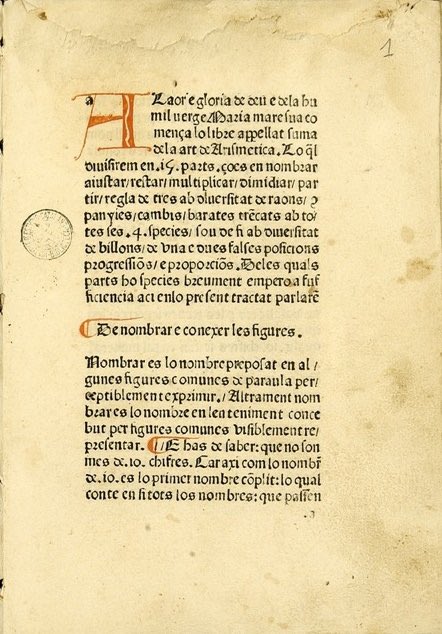 1
a Laor e gloria de deu e dela hu
mil verge Maria mare sua co
mença lo libre appellat suma
dela art de Arismetica. Lo q̄l
diuisirem en .15. parts. ço es en nombrar
aiustar/ restar/ multiplicar/ dimidiar/ par
tir/ regla de tres ab diuersitat de raons/ ꝯ
panyies/ cambis/ barates trēcats ab to/
tes les .4. species/ so u de fi ab diuersitat
de billons/ de vna e dues falses posicions
progressiōs/ e proporciōs. Deles quals
parts ho species breument empero a suf
ficiencia aci en lo present tractat parlarē
De nombrar e conexer les figures.
Nombrar es lo nombre preposat en al/
gunes figures comunes de paraula per/
ceptiblement exprimir./ Altrament nom
brar es lo nombre en len teniment conce
but per figures comunes visiblement re/
presentar. E has de saber: que no son
mes de .10. chifres. Car axi com lo nombr̄
de .10. es lo primer nombre cōplit: lo qual
conte en si tots los nombres: que passen